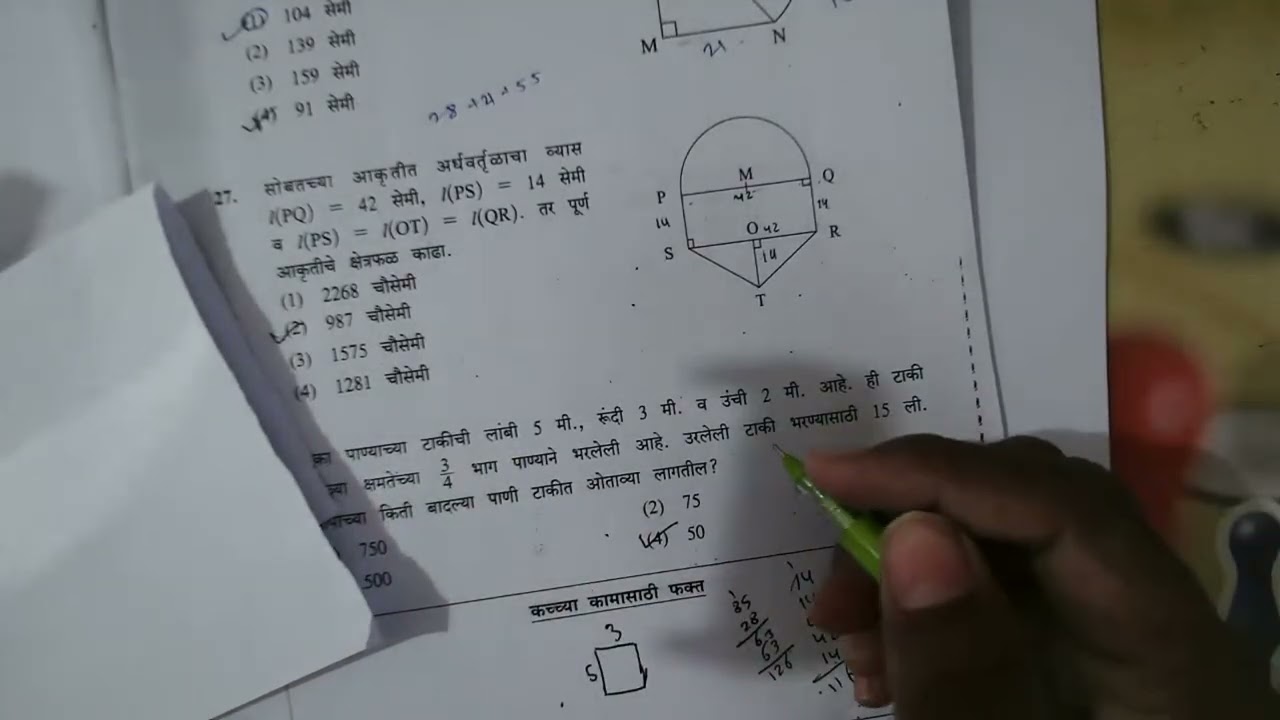 (1) 104 सेमी
(2) 139 सेमी
(3) 159 सेमी
(4) 91 सेमी
M
N
21
27. सोबतच्या आकृतीत अर्धवर्तुळाचा व्यास
l(PQ) = 42 सेमी, l(PS) = 14 सेमी
व l(PS) = l(OT) = l(QR). तर पूर्ण
आकृतीचे क्षेत्रफळ काढा.
(1) 2268 चौसेमी
(2) 987 चौसेमी
(3) 1575 चौसेमी
(4) 1281 चौसेमी
P
M
Q
42
14
14
O 42
R
S
14
T
पाण्याच्या टाकीची लांबी 5 मी., रूंदी 3 मी. व उंची 2 मी. आहे. ही टाकी
क्षमतेच्या 3/4 भाग पाण्याने भरलेली आहे. उरलेली टाकी भरण्यासाठी 15 ली.
किती बादल्या पाणी टाकीत ओताव्या लागतील?
750
(2) 75
500
(4) 50
कच्च्या कामासाठी फक्त
3
5
35
28
63
63
126
14
14